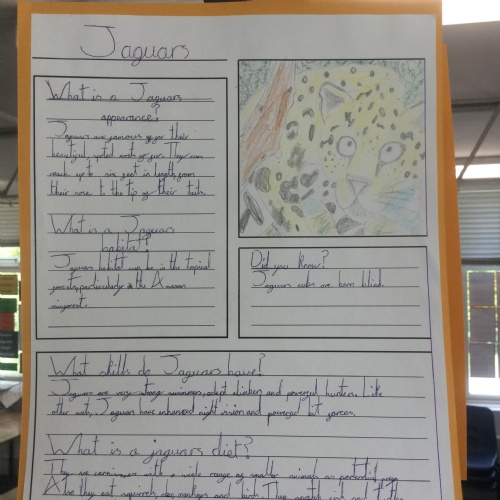 Jaguars
What is a Jaguars
appearance?
Jaguars are famous for their
beautiful spotted coats of fur. They can
reach up to six feet in length, from
their nose to the tip of their tails.
What is a Jaguars
habitat?
Jaguars habitat can be in the tropical
forests, particularly in the Amazon
rainforest.
Did you Know?
Jaguars cubs are born blind.
What skills do Jaguars have?
Jaguars are very strong swimmers, adept climbers and powerful hunters. Like
other cats, Jaguars have enhanced night vision and powerful
What is a jaguars diet?
They are carnivores with a wide range of smaller animals as potential prey.
Also they eat squirrels, deer, monkeys and birds. They